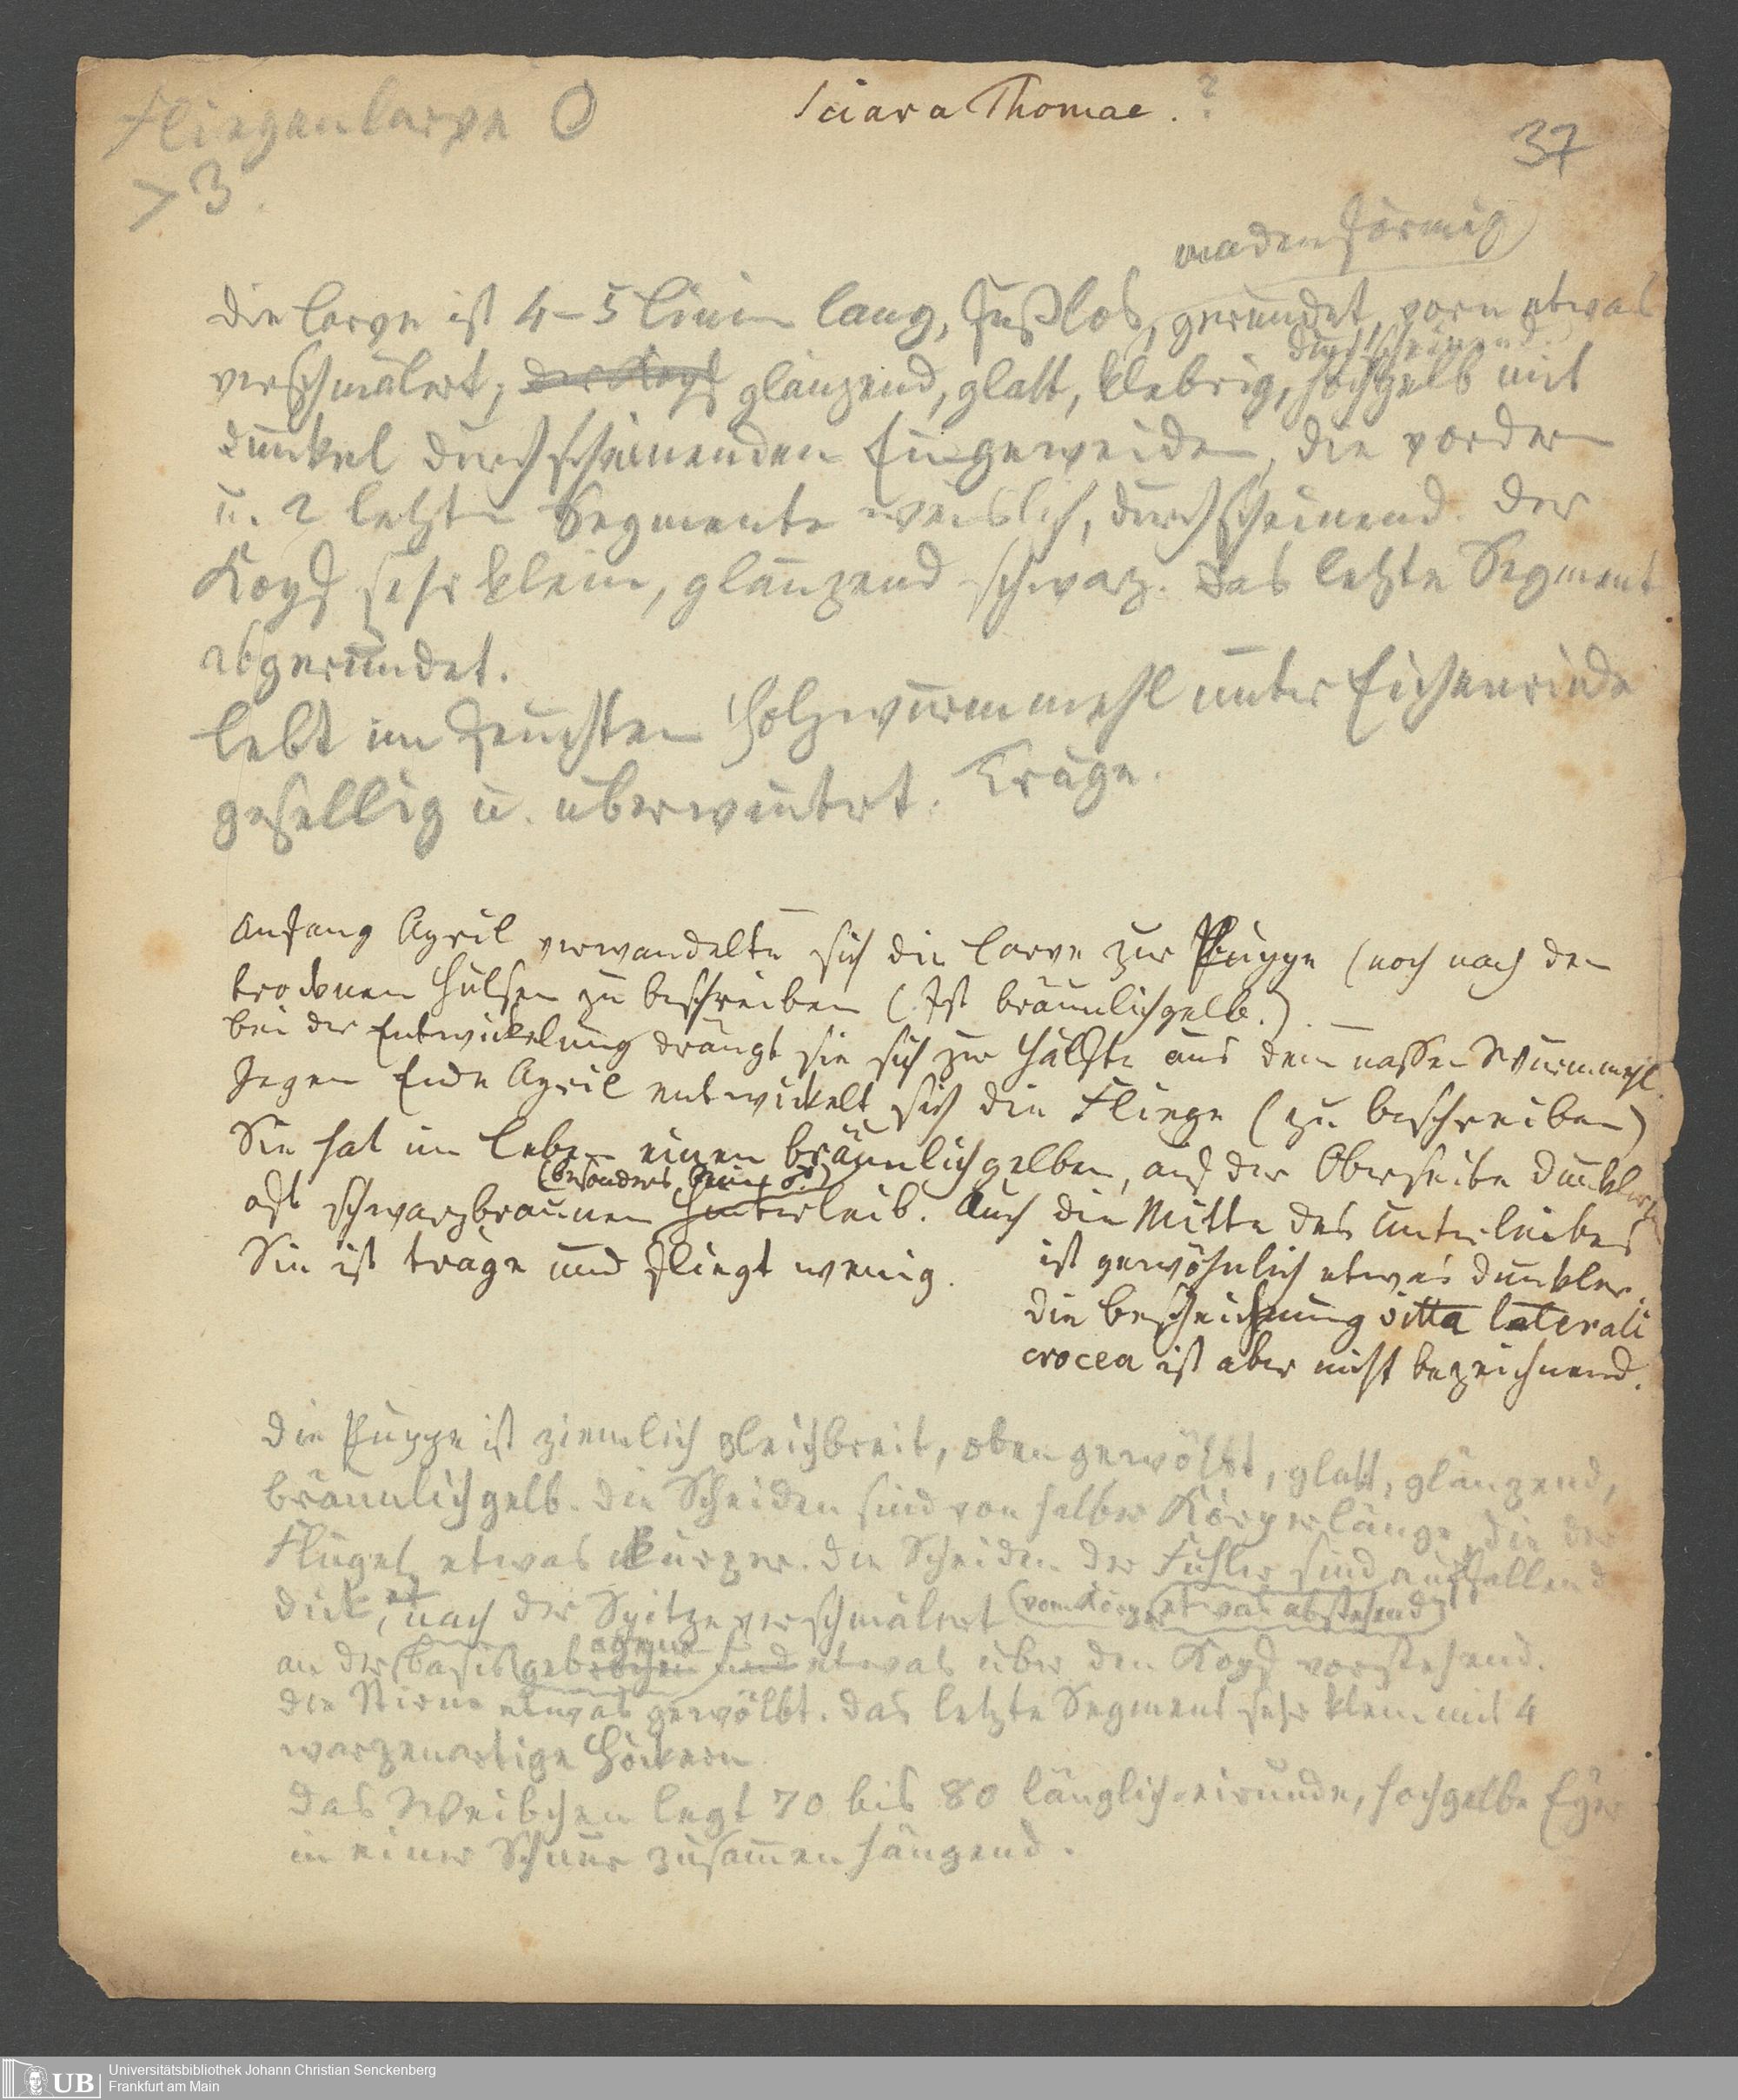 Fliegenlarve O
Sciara Thomae. ?
37
> 3.
madenförmig
Die Larve ist 4–5 Linien lang, fußlos, gerundet, vorn etwas
durchscheinend
verschmälert, der Kopf glänzend, glatt, klebrig, hochgelb mit
dunkel durchscheinenden Eingeweiden, die vordern
u. 2 letzten Segmente weislich, durchscheinend. Der
Kopf sehr klein, glänzend schwarz. Das letzte Segment
abgerundet.
Lebt im feuchten Holzwurmmehl unter Eichenrinde
gesellig u. überwintert. Träge.
Anfang April verwandelte sich die Larve zur Puppe (noch nach den
trockenen Hülsen zu beschreiben (Ist bräunlichgelb.). —
Bei der Entwickelung drängt sie sich zur Hälfte aus dem nassen Wurmmehl.
Gegen Ende April entwickelt sich die Fliege (zu beschreiben)
Sie hat im Leben einen bräunlichgelben, auf der Oberseite dunklern
(besonders beim ♂)
oft schwarzbraunen Hinterleib. Auch die Mitte des Unterleibes
Sie ist träge und fliegt wenig.
ist gewöhnlich etwas dunkler.
Die Bezeichnung vitta laterali
crocea ist aber nicht bezeichnend.
Die Puppe ist ziemlich gleichbreit, oben gewölbt, glatt, glänzend,
bräunlichgelb. Die Scheiden sind von halber Körperlänge, die der
Flügel etwas kürzer. Die Scheiden der Fühler sind auffallend
dick, nach der Spitze verschmälert (vom Körper etwas abstehend)
an der Basis gebogen und etwas über den Kopf vorstehend.
Die Stirne etwas gewölbt. Das letzte Segment sehr klein mit 4
warzenartige Höckern
Das Weibchen legt 70 bis 80 länglich-eirunde, hochgelbe Eyer
in einer Schnur zusammenhängend.
UB
Universitätsbibliothek Johann Christian Senckenberg
Frankfurt am Main